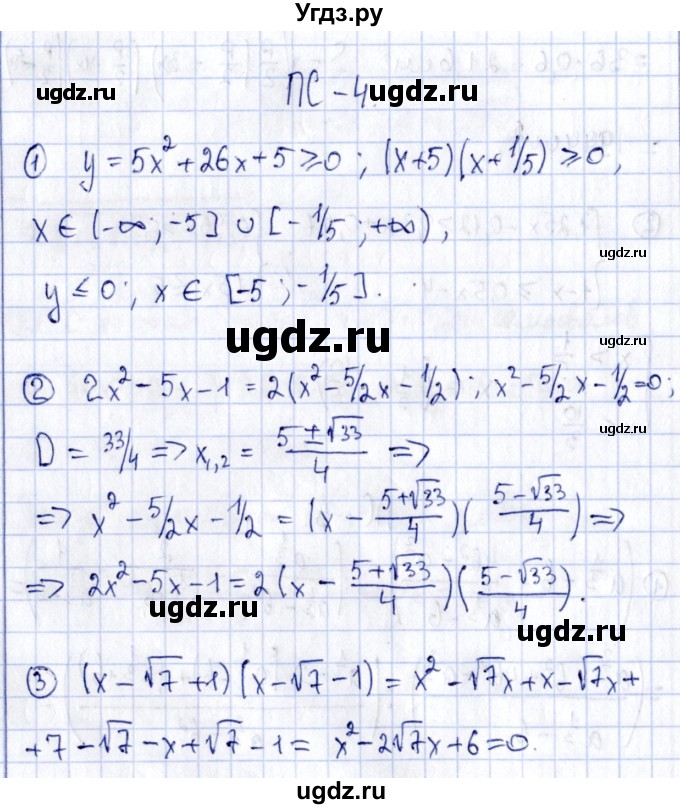 Угдз.ру
ПС - 4. ugdz.ru
ugdz.ru
① y = 5x² + 26x + 5 ⩾ 0 ; (x+5)(x+1/5) ⩾ 0,
x ∈ (-∞; -5] ∪ [-1/5 ; +∞),
ugdz.ru
y ≤ 0; x ∈ [-5 ; -1/5].
ugdz.ru
② 2x² - 5x - 1 = 2(x² - 5/2x - 1/2); x² - 5/2x - 1/2 = 0;
ugdz.ru
D = 33/4 => x₁,₂ = (5 ± √33)/4 =>
=> x² - 5/2x - 1/2 = (x - (5+√33)/4)( (5-√33)/4) =>
=> 2x² - 5x - 1 = 2(x - (5+√33)/4)((5-√33)/4).
ugdz.ru
ugdz.ru
ugdz.ru
③ (x - √7 + 1)(x - √7 - 1) = x² - √7x + x - √7x +
+ 7 - √7 - x + √7 - 1 = x² - 2√7x + 6 = 0.
ugdz.ru